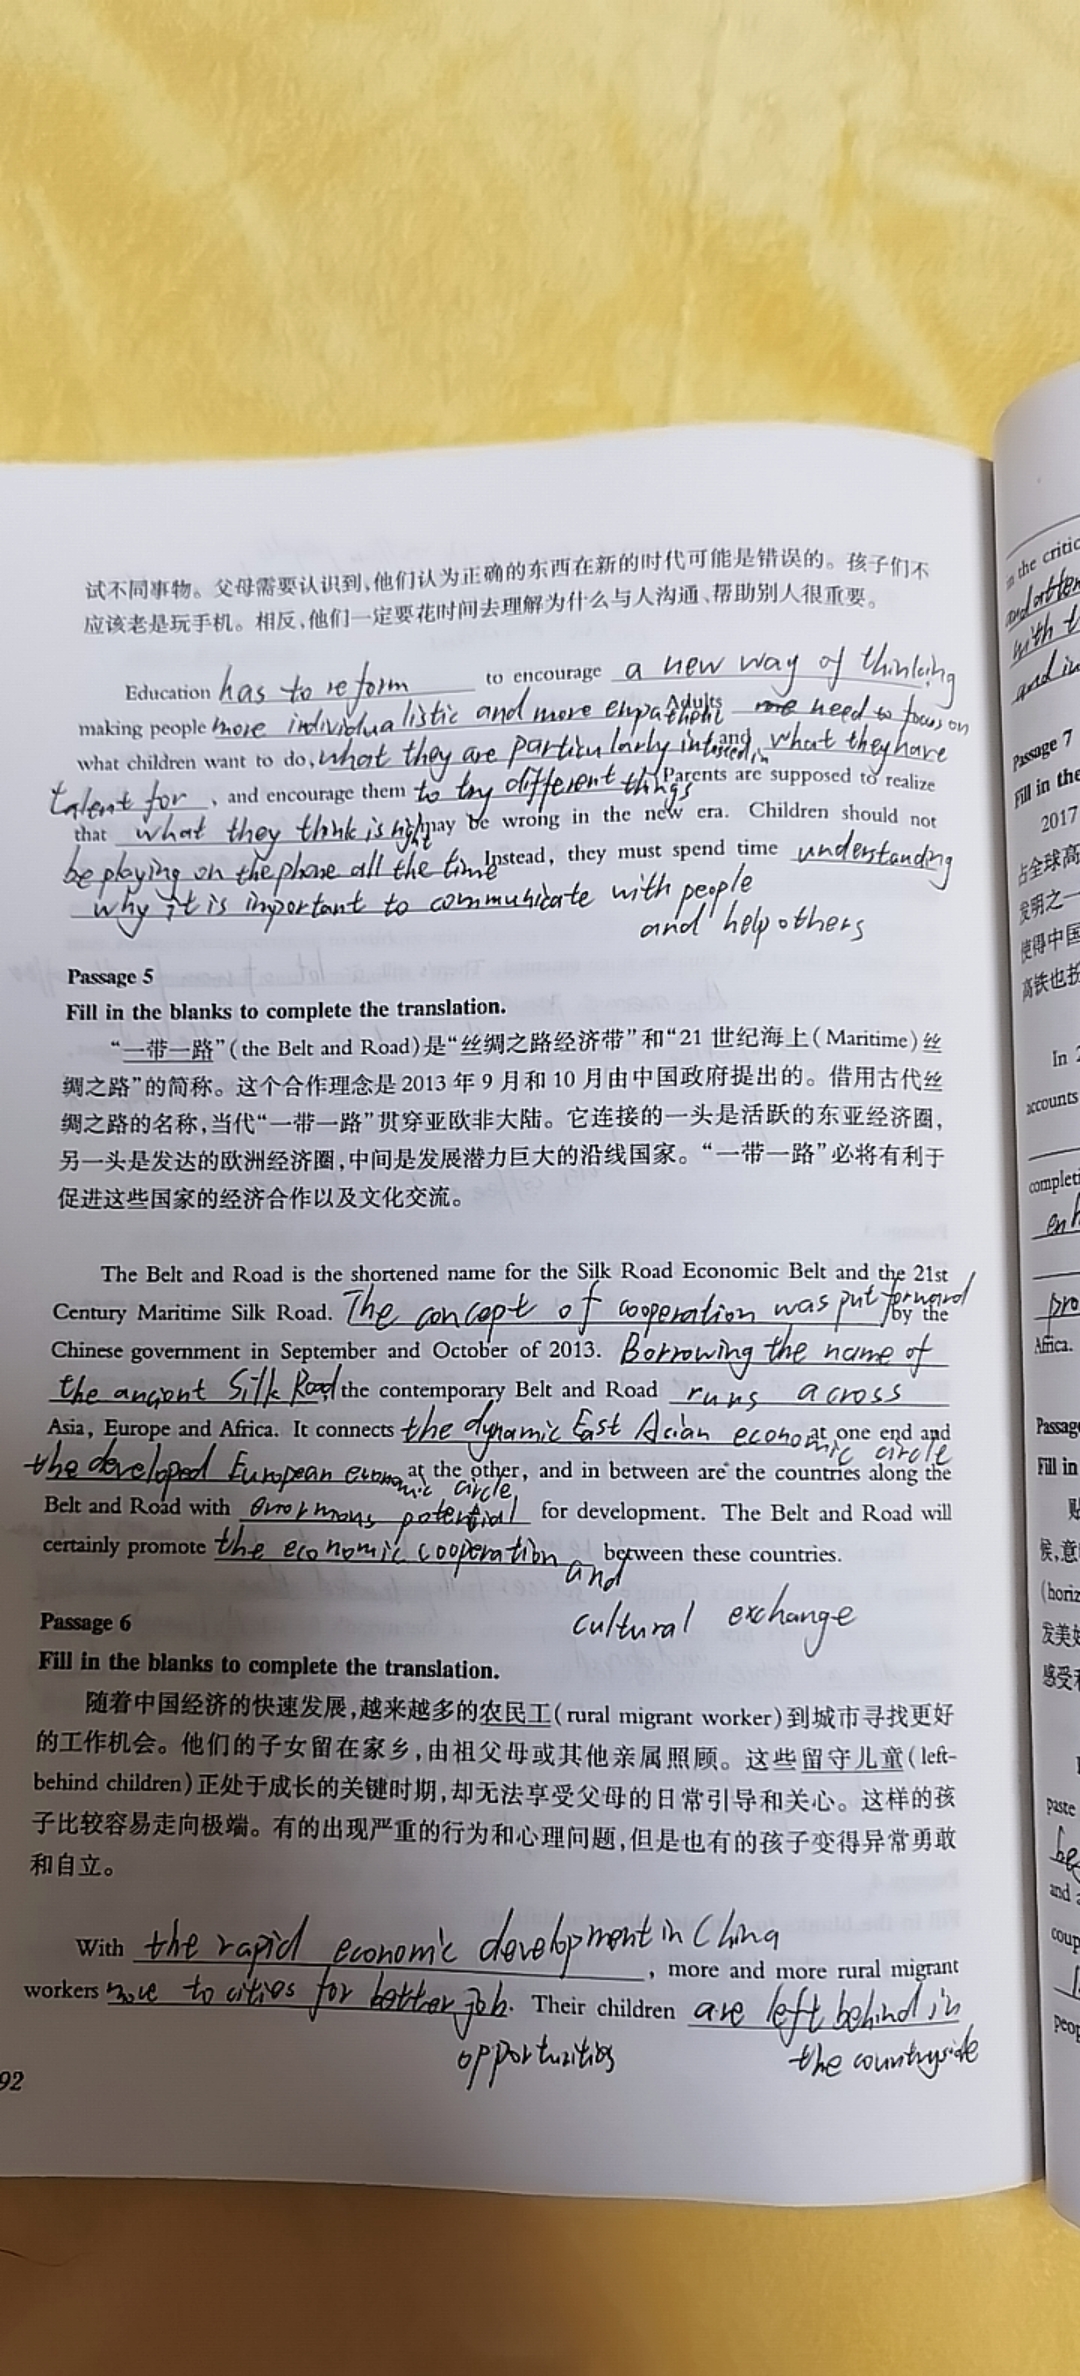 试不同事物。父母需要认识到,他们认为正确的东西在新的时代可能是错误的。孩子们不
应该老是玩手机。相反,他们一定要花时间去理解为什么与人沟通、帮助别人很重要。
Education has to reform to encourage a new way of thinking
making people more individualistic and more empathetic Adults need to focus on
what children want to do, what they are particularly in and what they have
talent for, and encourage them to try different things Parents are supposed to realize
that what they think is right may be wrong in the new era. Children should not
be playing on the phone all the time Instead, they must spend time understanding
why it is important to communicate with people
and help others
Passage 5
Fill in the blanks to complete the translation.
“一带一路”(the Belt and Road)是“丝绸之路经济带”和“21 世纪海上(Maritime)丝
绸之路”的简称。这个合作理念是 2013 年 9 月和 10 月由中国政府提出的。借用古代丝
绸之路的名称,当代“一带一路”贯穿亚欧非大陆。它连接的一头是活跃的东亚经济圈,
另一头是发达的欧洲经济圈,中间是发展潜力巨大的沿线国家。“一带一路”必将有利于
促进这些国家的经济合作以及文化交流。
The Belt and Road is the shortened name for the Silk Road Economic Belt and the 21st
Century Maritime Silk Road. The concept of cooperation was put forward by the
Chinese government in September and October of 2013. Borrowing the name of
the ancient Silk Road, the contemporary Belt and Road runs across
Asia, Europe and Africa. It connects the dynamic East Asian economic circle at one end and
the developed European economic circle, at the other, and in between are the countries along the
Belt and Road with potential for development. The Belt and Road will
certainly promote the economic cooperation and between these countries.
cultural exchange
Passage 6
Fill in the blanks to complete the translation.
随着中国经济的快速发展,越来越多的农民工(rural migrant worker)到城市寻找更好
的工作机会。他们的子女留在家乡,由祖父母或其他亲属照顾。这些留守儿童(left-
behind children)正处于成长的关键时期,却无法享受父母的日常引导和关心。这样的孩
子比较容易走向极端。有的出现严重的行为和心理问题,但是也有的孩子变得异常勇敢
和自立。
With the rapid economic development in China, more and more rural migrant
workers move to cities for better job. Their children are left behind in
opportunities the countryside
92
in the critic
with t
and in
Passage 7
Fill in the
2017
占全球高
发明之一
使得中国
高铁也
In 2
accounts
completi
enh
pro
Africa.
Passage
Fill in
候,意
(horiz
发美好
感受
paste
be
and a
coup
peop